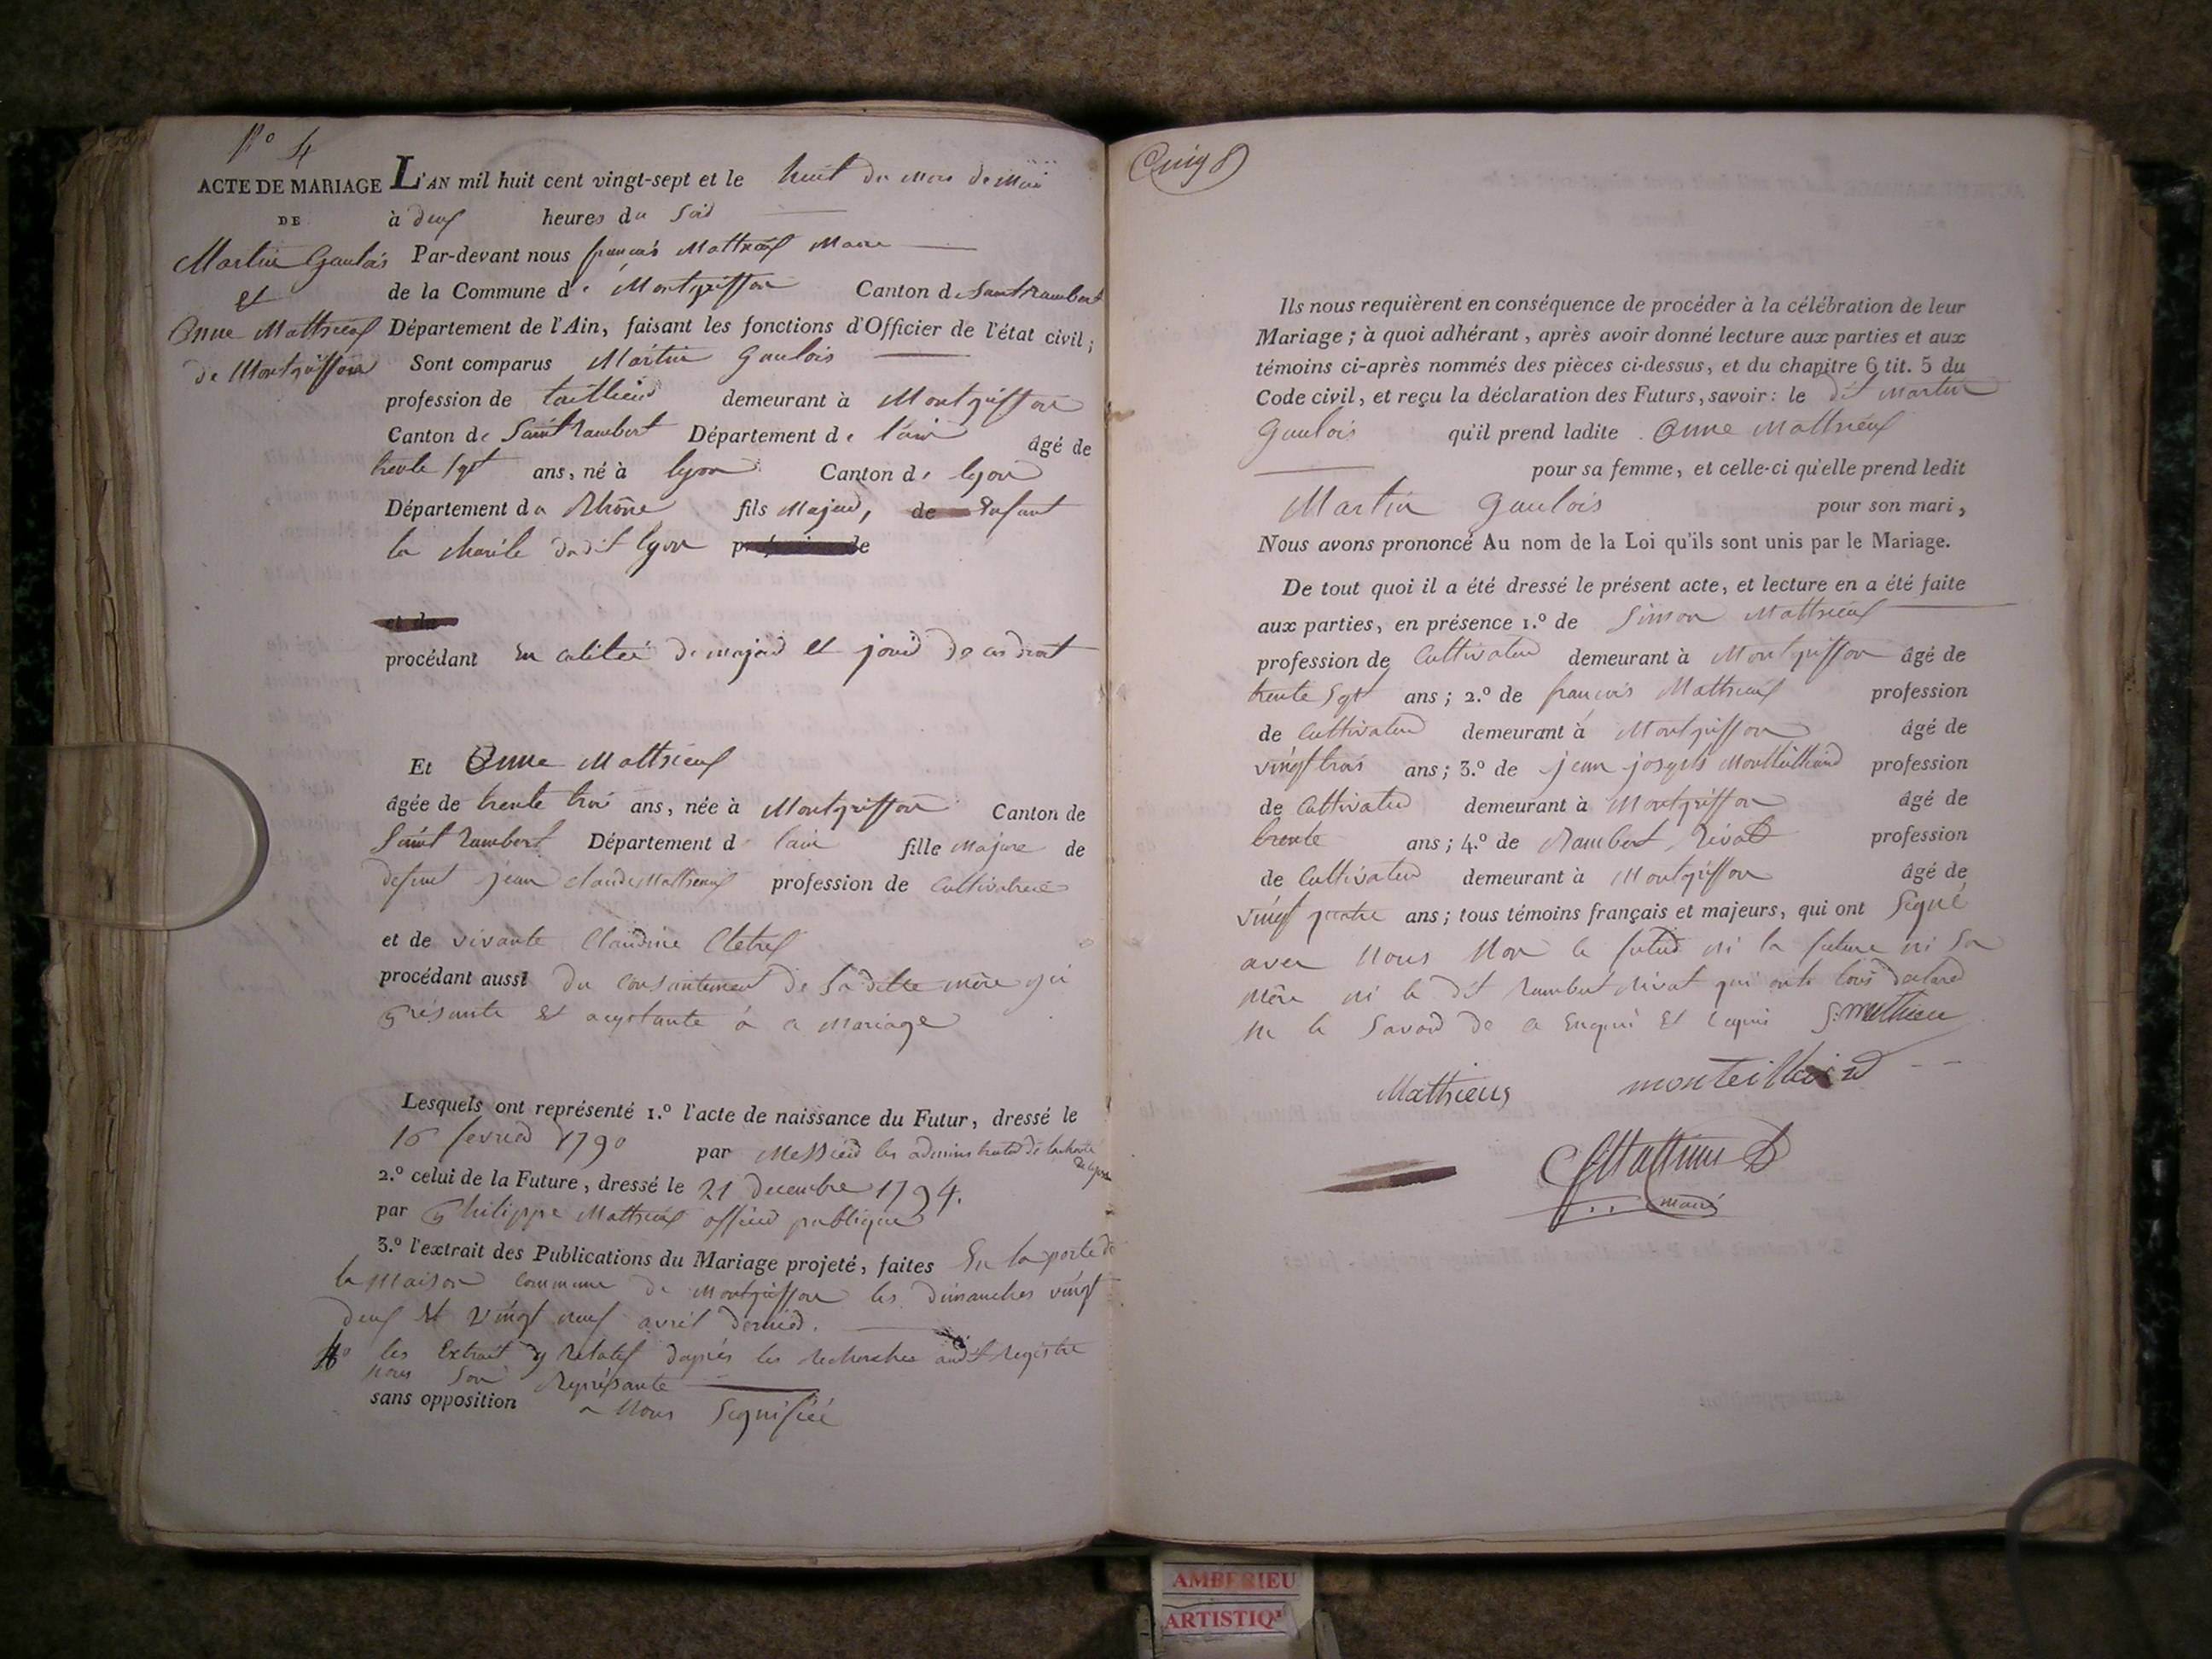 N° 4
ACTE DE MARIAGE
DE
Martin Gaulois
et
Anne Mathieux
de Montgriffon
L'AN mil huit cent vingt-sept et le huit du mois de Mai
à deux heures du soir
Par-devant nous françois Mathieux Maire
de la Commune de Montgriffon Canton de Saint Rambert
Département de l'Ain, faisant les fonctions d'Officier de l'état civil;
Sont comparus Martin Gaulois
profession de tailleur demeurant à Montgriffon
Canton de Saint Rambert Département de l'ain âgé de
trente sept ans, né à lyon Canton de lyon
Département du Rhône fils majeur, de Enfant
la charité dudit lyon
et de
procédant en calitée de majeur et jouir de ces droit
Et Anne Mathieux
âgée de trente trois ans, née à Montgriffon Canton de
Saint Rambert Département d l'ain fille majure de
defunt jean claude Mathieux profession de Cultivatrice
et de vivante Claudine Cletrex
procédant aussi du consintement de sa ditte mère qui
présante et aceptante à ce mariage
Lesquels ont représenté 1.° l'acte de naissance du Futur, dressé le
16 fevrier 1790 par Messieur les administrateur de la charité
de lyon
2.° celui de la Future, dressé le 21 decembre 1794.
par Philippe Mathieux officier publique
3.° l'extrait des Publications du Mariage projeté, faites En la porte de
la maison commune de Montgriffon les dimanches vingt
deux et vingt neuf avril dernier.
4° les Extrait y relatif dapres les recherches audit registre
nous son représanté
sans opposition a nous signifiée
Cinq
Ils nous requièrent en conséquence de procéder à la célébration de leur
Mariage; à quoi adhérant, après avoir donné lecture aux parties et aux
témoins ci-après nommés des pièces ci-dessus, et du chapitre 6 tit. 5 du
Code civil, et reçu la déclaration des Futurs, savoir: le dit Martin
Gaulois qu'il prend ladite Anne Mathieux
pour sa femme, et celle-ci qu'elle prend ledit
Martin Gaulois pour son mari,
Nous avons prononcé Au nom de la Loi qu'ils sont unis par le Mariage.
De tout quoi il a été dressé le présent acte, et lecture en a été faite
aux parties, en présence 1.° de Simon Mathieux
profession de Cultivateur demeurant à Montgriffon âgé de
trente sept ans; 2.° de françois Mathieux profession
de Cultivateur demeurant à Montgriffon âgé de
vingt trois ans; 3.° de jean joseph Monteilliard profession
de Cultivateur demeurant à Montgriffon âgé de
trente ans; 4.° de Rambert Rivat profession
de Cultivateur demeurant à Montgriffon âgé de
vingt quatre ans; tous témoins français et majeurs, qui ont signé
avec nous Non le futur ni la future ni sa
mère ni le dit Rambert Rivat qui onts tous declaré
ne le savoir de ce Enquis et requis S. mathieu
Mathieux monteilliard
Mathieux
maire
AMBERIEU
ARTISTIQ